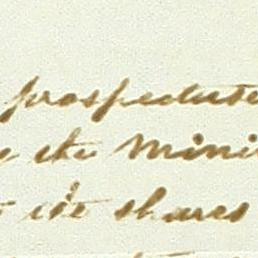 prospectus
the Mini
its shares